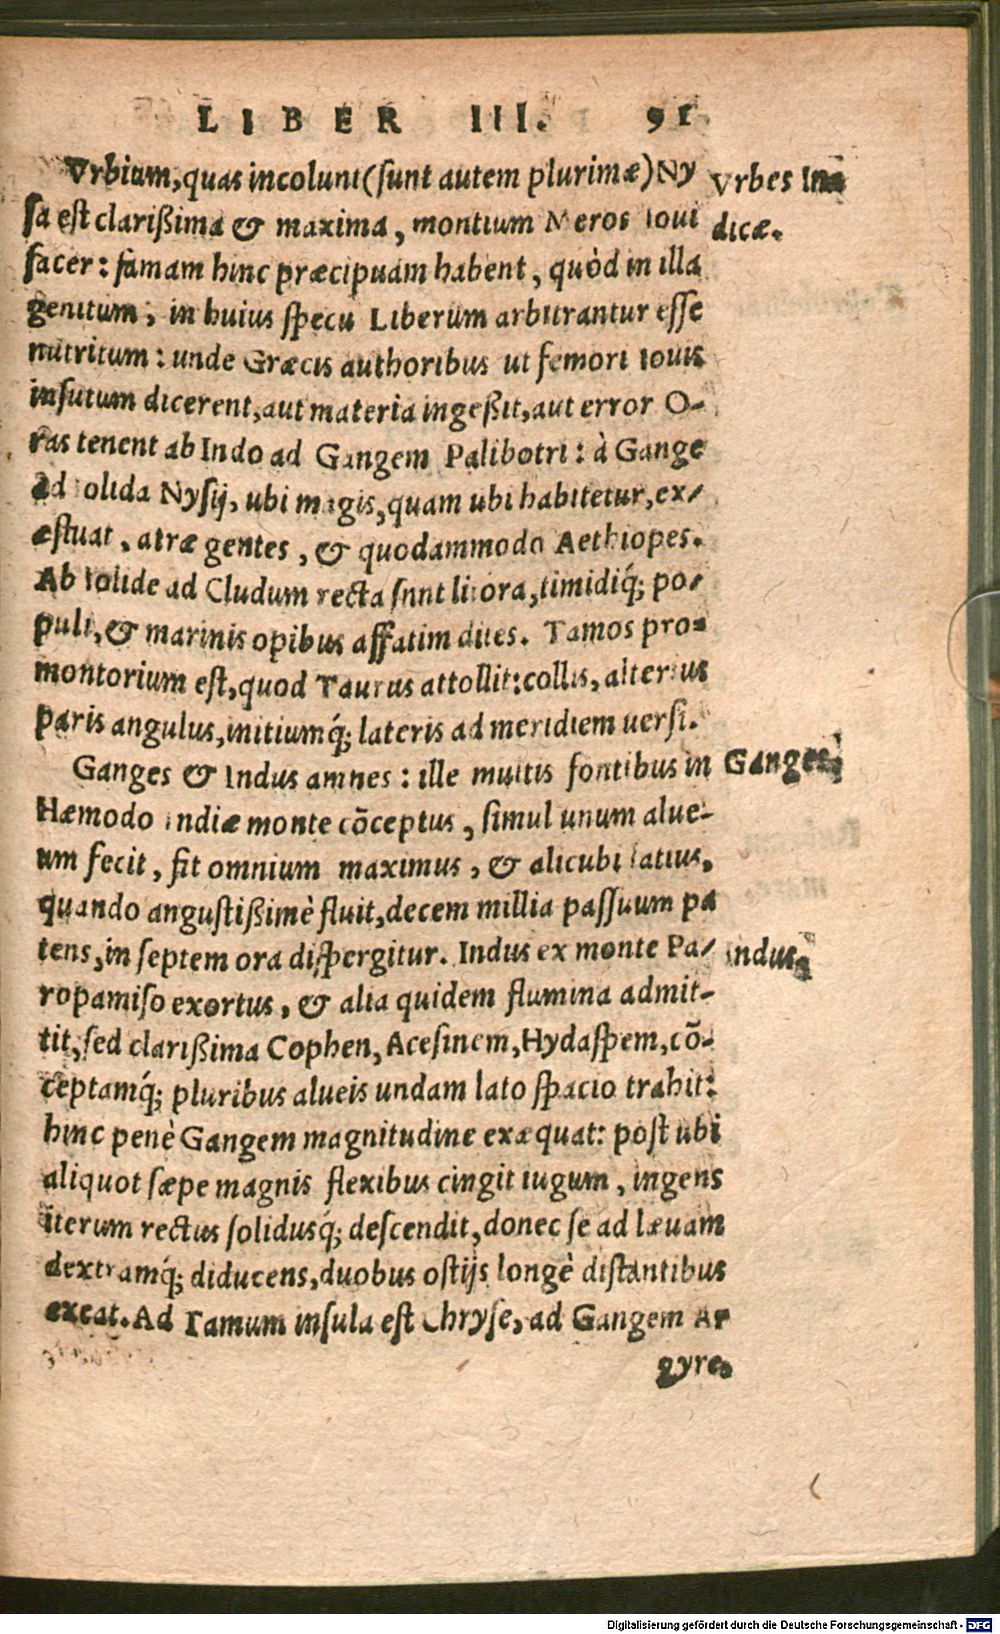 LIBER III. 91
Vrbium, quas incolunt (sunt autem plurimæ) Ny
Vrbes In⸗
sa est clarißima & maxima, montium Meros Ioui
dicæ.
sacer: famam hinc præcipuam habent, quòd in illa
genitum, in huius specu Liberum arbitrantur esse
nutritum: unde Græcis authoribus ut femori Iouis
insutum dicerent, aut materia ingeßit, aut error O-
ras tenent ab Indo ad Gangem Palibotri: à Gange
ad Colida Nysij, ubi magis, quam ubi habitetur, ex/
æstuat, atræ gentes, & quodammodo Aethiopes.
Ab Iolide ad Cludum recta sunt litora, timidiq́; po/
puli, & marinis opibus affatim dites. Tamos pro⸗
montorium est, quod Taurus attollit: collis, alterius
paris angulus, initiumq́; lateris ad meridiem uersi.
Ganges & Indus amnes: ille multis fontibus in
Ganges.
Hæmodo Indiæ monte cōceptus, simul unum alue-
um fecit, fit omnium maximus, & alicubi latius,
quando angustißimè fluit, decem millia passuum pa
tens, in septem ora dispergitur. Indus ex monte Pa/
Indus.
ropamiso exortus, & alia quidem flumina admit-
tit, sed clarißima Cophen, Acesinem, Hydaspem, cō-
ceptamq́; pluribus alueis undam lato spacio trahit:
hinc penè Gangem magnitudine exæquat: post ubi
aliquot sæpe magnis flexibus cingit iugum, ingens
iterum rectus solidusq́; descendit, donec se ad læuam
dextramq́; diducens, duobus ostijs longè distantibus
exeat. Ad Tamum insula est Chryse, ad Gangem Ar
gyre.
Digitalisierung gefördert durch die Deutsche Forschungsgemeinschaft - DFG